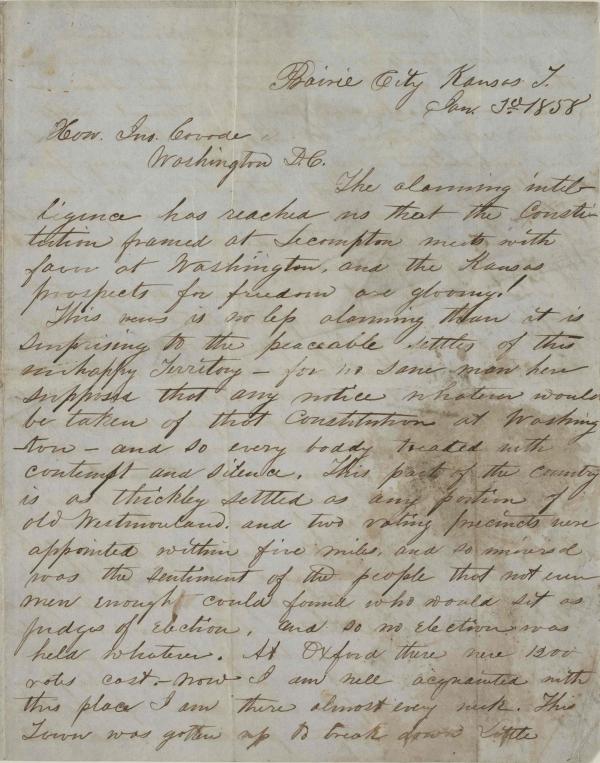 Prairie City Kansas T.
Jan. 3rd 1858
Hon. Jno. Covode
Washington D.C.
The alarming intel-
ligence has reached us that the Consti-
tution framed at Lecompton meets with
favor at Washington, and the Kansas
prospects for freedom are gloomy!
This news is no less alarming than it is
surprising to the peaceable settlers of this
unhappy Territory - for no sane man here
supposed that any notice whatever would
be taken of that Constitution at Washing
-ton - and so every boddy treated with
contempt and silence. This part of the country
is as thickley settled as any portion of
old Westmoreland. and two voting precincts were
appointed within five miles, and so universal
was the sentiment of the people that not even
men enough could found who would sit as
judges of election, and so no election was
held whatever. At Oxford there were 1200
votes cast - now I am well acquainted with
this place I am there almost every week. This
Town was gotten up to break down Little